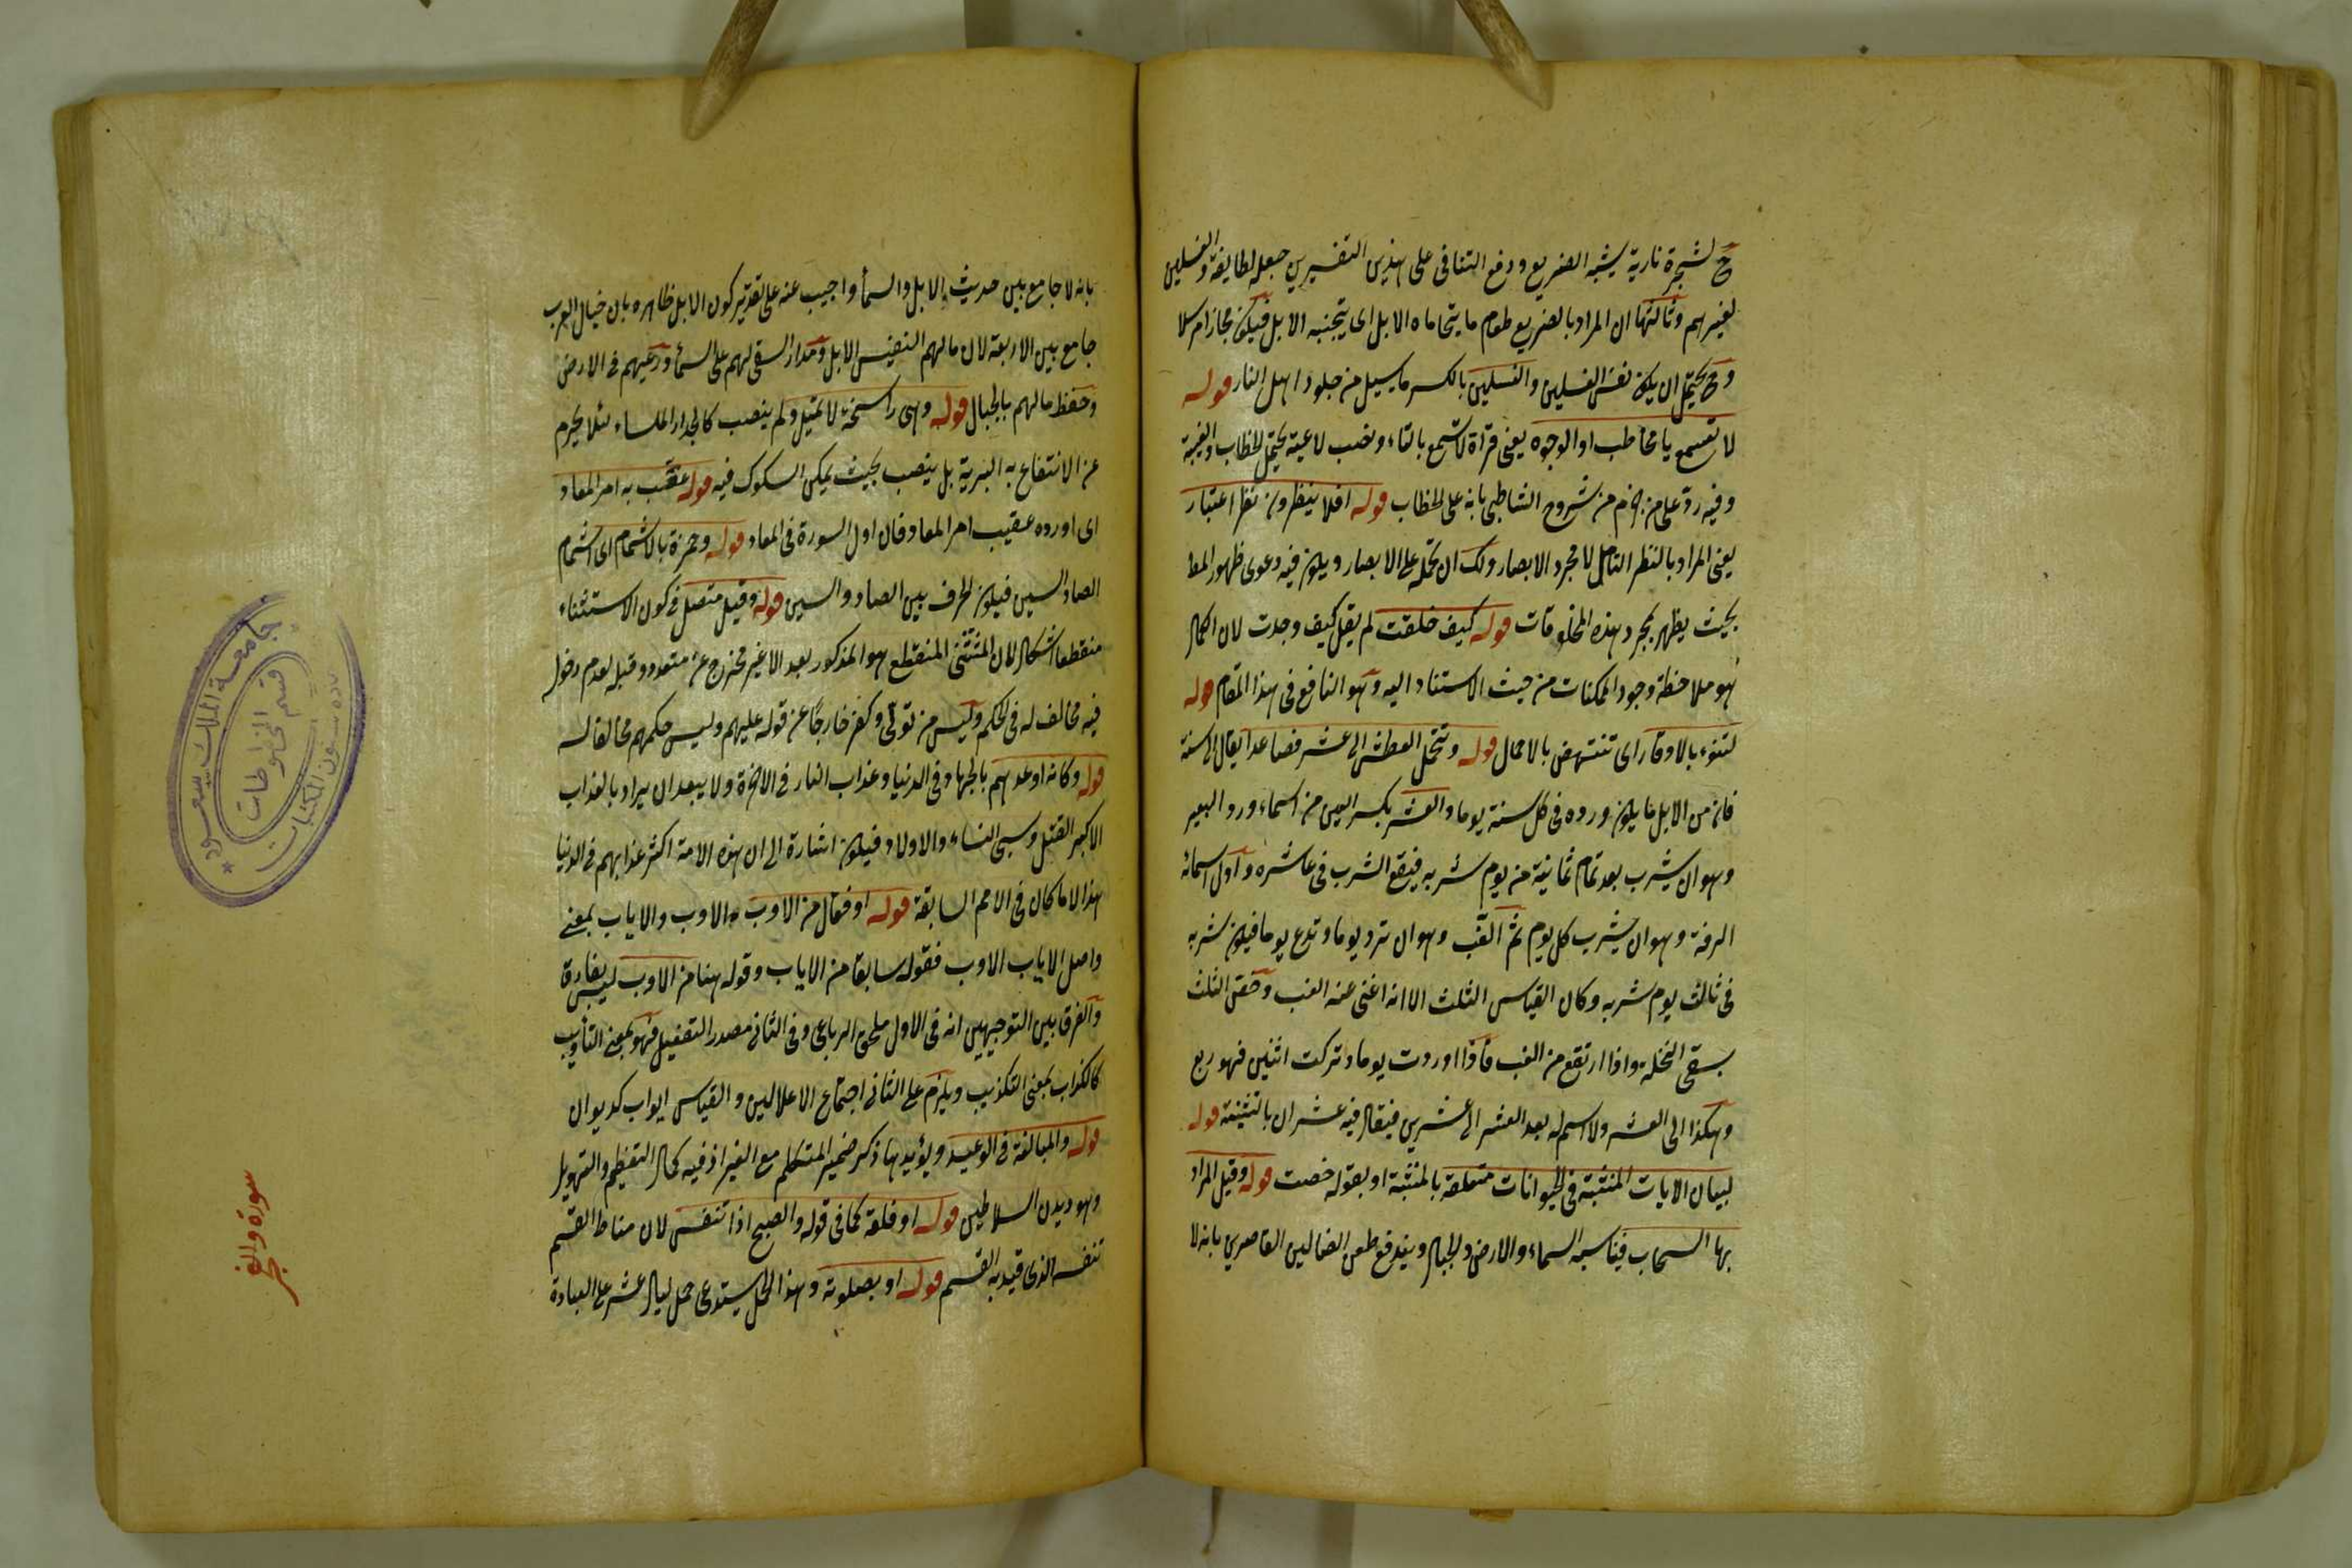 ح لشجرة نارية يشبه الضريع ودفع التنافى على هذين التفسيرين جعله لطايفة والغسلين
لغيرهم وثالثها ان المراد بالضريع طعام ما يتحاماه الابل اى يتجنبه الابل فيكون مجازا مرسلا
وح يحتمل ان يكون نفس الغسلين والغسلين بالكسر ما يسيل من جلود اهل النار قوله
لا تسمع يا مخاطب او الوجوه يعنى قراة لا تسمع بالتاء ونصب لاغية يحتمل الخطاب والغيبة
وفيه رد على من جزم من شروح الشاطبى بانه على الخطاب قوله افلا ينظرون نظر اعتبار
يعنى المراد بالنظر التامل لا مجرد الابصار ولك ان تحمله على الابصار ويكون فيه دعوى ظهور المط
بحيث يظهر بمجرد هذه المخلوقات قوله كيف خلقت لم يقل كيف وجدت لان الكمال
هو ملاحظة وجود الممكنات من حيث الاستناد اليه وهو النافع فى هذا المقام قوله
لتنوء بالاوقار اى تنتهض بالاحمال قوله وتحمل العطش الى عشر فصاعدا يقال الى سنة
فان من الابل ما يكون وروده فى كل سنة يوما والعشر بكسر العين من اسماء ورد البعير
وهو ان يشرب بعد تمام ثمانية من يوم شربه فيقع الشرب فى عاشره واول اسمائه
الرفة وهو ان يشرب كل يوم ثم الغب وهو ان ترد يوما وتدع يوما فيكون شربه
فى ثالث يوم شربه وكان القياس الثلث الا انه اغنى عنه الغب وحقق الثلث
بسقى النخلة واذا ارتقع من الغب فاذا اوردت يوما وتركت اثنين فهو ربع
وهكذا الى العشر ولا اسم له بعد العشر الى عشرين فيقال فيه عشران بالتثنية قوله
لبيان الايات المنثبة فى الحيوانات متعلقة بالمنثبة او بقوله خصت قوله وقيل المراد
بها السحاب فيناسبه السماء والارض والجبال ويندفع طعن الضالين القاصرين بانه لا
بانه لا جامع بين حديث الابل والسمآ واجيب عنه على تقدير كون الابل ظاهره بان خيال العرب
جامع بين الاربعة لان مالهم النفيس الابل ومدار السقى لهم على السمآ ورعيهم فى الارض
وحفظ مالهم بالجبال قوله وهى راسخة لا تميل ولم ينصب كالجدار الملساء لئلا يحرم
عن الانتفاع به البرية بل ينصب بحيث يمكن السلوك فيه قوله عقب به امر المعاد
اى اورده عقيب امر المعاد فان اول السورة فى المعاد قوله وحمزة بالاشمام اى اشمام
الصاد السين فيكون الحرف بين الصاد والسين قوله وقيل متصل فى كون الاستثناء
منقطعا اشكال لان المستثنى المنقطع هو المذكور بعد الا غير مخرج عن متعدد وقبل لعدم دخوله
فيه مخالف له فى الحكم وليس من تولى وكفر خارجا عن قوله عليهم وليس حكمهم مخالفا له
قوله وكانه اوعدهم بالجهاد فى الدنيا وعذاب النار فى الاخرة ولا يبعد ان يراد بالعذاب
الاكبر القتل وسبى النساء والاولاد فيكون اشارة الى ان هذه الامة اكثر عذابهم فى الدنيا
هذا الا ما كان فى الامم السابقة قوله او فعال من الاوب والاوب والاياب بمعنى
واصل الاياب الاوب فقوله سابقا من الاياب وقوله هنا من الاوب ليس بفارقة
والفرق بين التوجيهين انه فى الاول ملحق الرباعى وفى الثانى مصدر التفعيل فهو بمعنى التأويب
كالكذاب بمعنى التكذيب ويلزم على الثانى اجتماع الاعلالين والقياس ايواب كديوان
قوله والمبالغة فى الوعيد ويؤيدها ذكر ضمير المتكلم مع الغير اذ فيه كمال التعظيم والتهويل
وهو ديدن السلاطين قوله او فلقه كما فى قوله والصبح اذا تنفس لان مناط القسم
تنفسه الذى قيد به القسم قوله او بصلوته وهذا الحمل يستدعى حمل ليال عشر على العبادة
سورة والفجر
جامعة الملك سعود
قسم المخطوطات
عمادة شؤون المكتبات